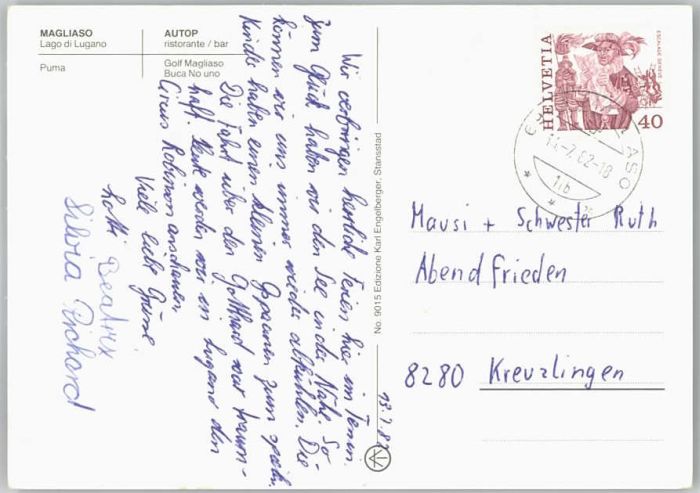 MAGLIASO
Lago di Lugano
Puma
AUTOP
ristorante / bar
Golf Magliaso
Buca No uno
Wir verbringen herrliche Ferien hier im Tessin.
Zum Glück haben wir den See in der Nähe. So
können wir uns immer wieder abkühlen. Die
Kinder haben einen kleinen zum spielen.
Die Fahrt über den Gotthard war traum-
haft. Heute werden wir in Lugano den
Circus Robinson anschauen.
Viele liebe Grüsse
Beatrix
Silvia Richard
No. 9015 Edizione Karl Engelberger, Stansstad
13.7.82
HELVETIA
ESCALADE GENÈVE
40
Mausi + Schwester Ruth
Abendfrieden
8280 Kreuzlingen